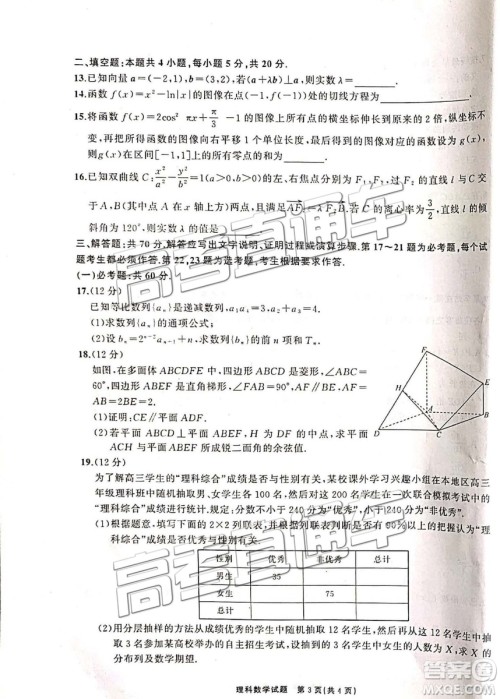 二、填空题:本题共 4 小题,每小题 5 分,共 20 分.
13.已知向量 a=(-2,1),b=(3,2),若(a+λb)⊥a,则实数 λ=
14.函数 f(x)=x²-ln|x|的图像在点(-1,f(-1))处的切线方程为
15.将函数 f(x)=2cos²
-1 的图像上所有点的横坐标伸长到原来的 2 倍,纵坐标不
变,再把所得函数的图像向右平移 1 个单位长度,最后得到的图像对应的函数设为 g(x),
则 g(x)在区间[-1,1]上的所有零点的和为
16.已知双曲线 C:x²/a²-y²/b²=1(a>0,b>0)的左、右焦点分别为 F₁,F₂,过 F₁ 的直线 l 与 C 交
于 A,B(其中点 A 在 x 轴上方)两点,且满足
若 C 的离心率为 3/2,直线 l 的倾
斜角为 120°,则实数 λ 的值是
三、解答题:共 70 分.解答应写出文字说明、证明过程或演算步骤.第 17~21 题为必考题,每个试
题考生都必须作答.第 22,23 题为选考题,考生根据要求作答.
(一)必考题:共 60 分.
17.(12 分)
已知等比数列{aₙ}是递减数列,
(1)求数列{aₙ}的通项公式;
(2)设
求数列{bₙ}的前 n 项和 Tₙ.
18.(12 分)
如图,在多面体 ABCDFE 中,四边形 ABCD 是菱形,∠ABC=
60°,四边形 ABEF 是直角梯形,∠FAB=90°,AF∥BE,AF=
AB=2BE=2.
(1)证明:CE∥平面 ADF.
(2)若平面 ABCD⊥平面 ABEF,H 为 DF 的中点,求平面
ACH 与平面 ABEF 所成锐二面角的余弦值.
F
E
H
A
B
D
C
19.(12 分)
为了解高三学生的“理科综合”成绩是否与性别有关,某校课外学习兴趣小组在本地区高三
年级理科班中随机抽取男、女学生各 100 名,然后对 200 名学生在一次联合模拟考试中的
“理科综合”成绩进行统计.规定:分数不小于 240 分为“优秀”,小于 240 分为“非优秀”.
(1)根据题意,填写下面的 2×2 列联表,并根据列联表判断是否有 90%以上的把握认为“理
科综合”成绩是否优秀与性别有关.
性别 优秀 非优秀 总计
男生 35
女生 75
总计
(2)用分层抽样的方法从成绩优秀的学生中随机抽取 12 名学生,然后再从这 12 名学生中
抽取 3 名参加某高校举办的自主招生考试,设抽到的 3 名学生中女生的人数为 X,求 X
的分布列及数学期望.
理科数学试题 第 3 页(共 4 页)
高考直通车
高考直通车
高考直通车